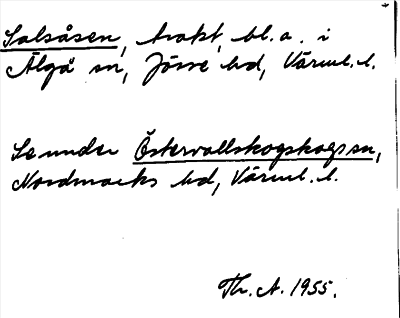 Salsåsen, trakt, bl.a. i
Älgå sn, Jösse hd, Värml. l.
Se under Östervallskogskogs sn,
Nordmarks hd, Värml. l.
Th. A. 1955.